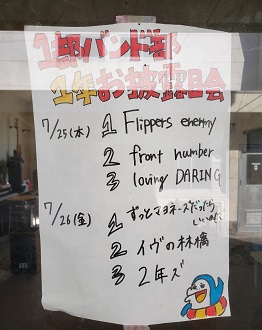 1部バンド部
1年お披露目会
7/25(木) 1 Flippers enemy
2 front number
3 loving DARING
7/26(金) 1 ずっとマヨネーズだったらいいのに
2 イヴの林檎
3 2年ズ